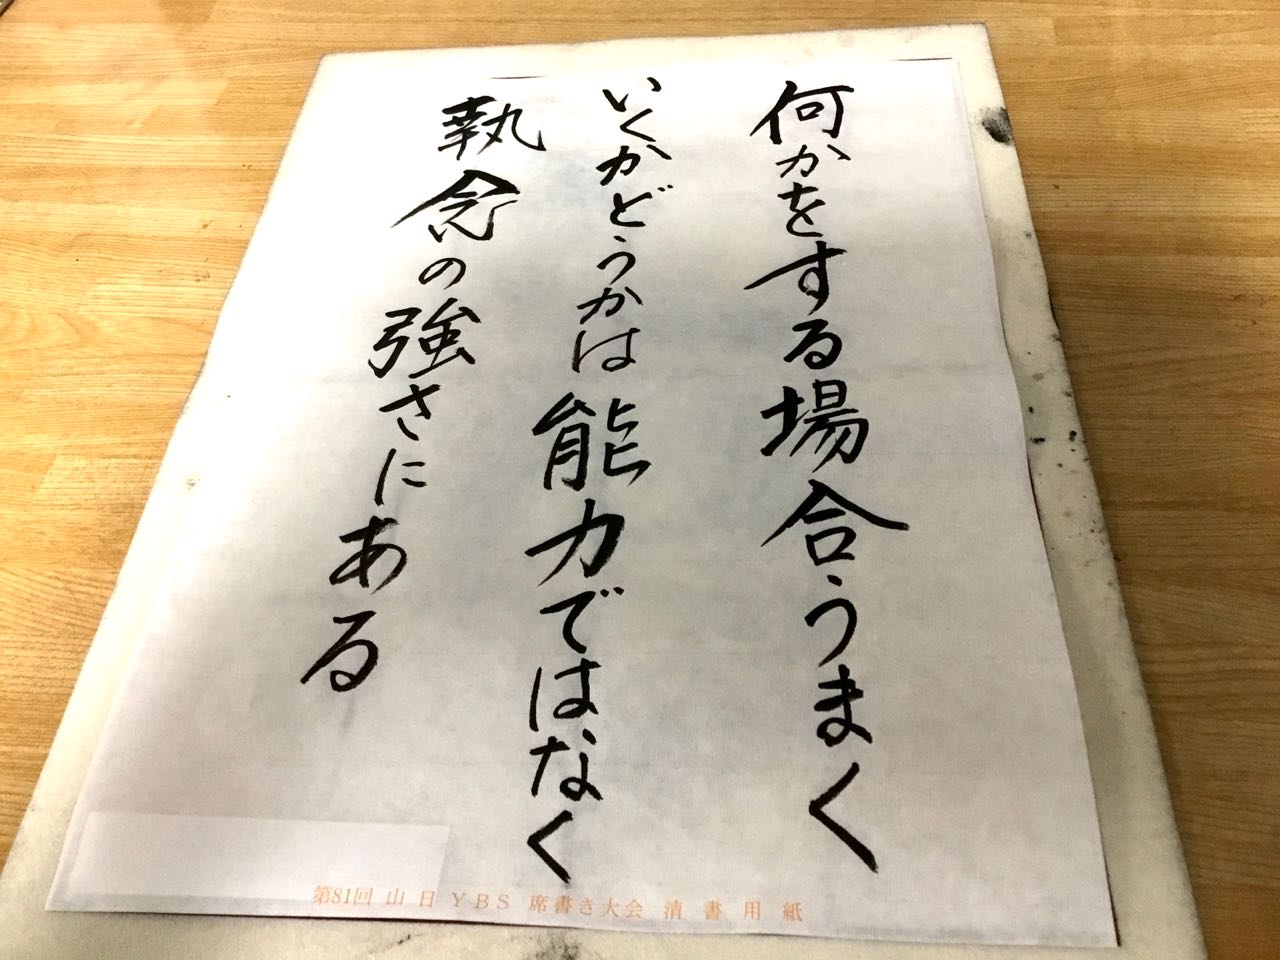 何かをする場合うまく
いくかどうかは能力ではなく
執念の強さにある
第81回 山日YBS 席書き大会 清書用紙